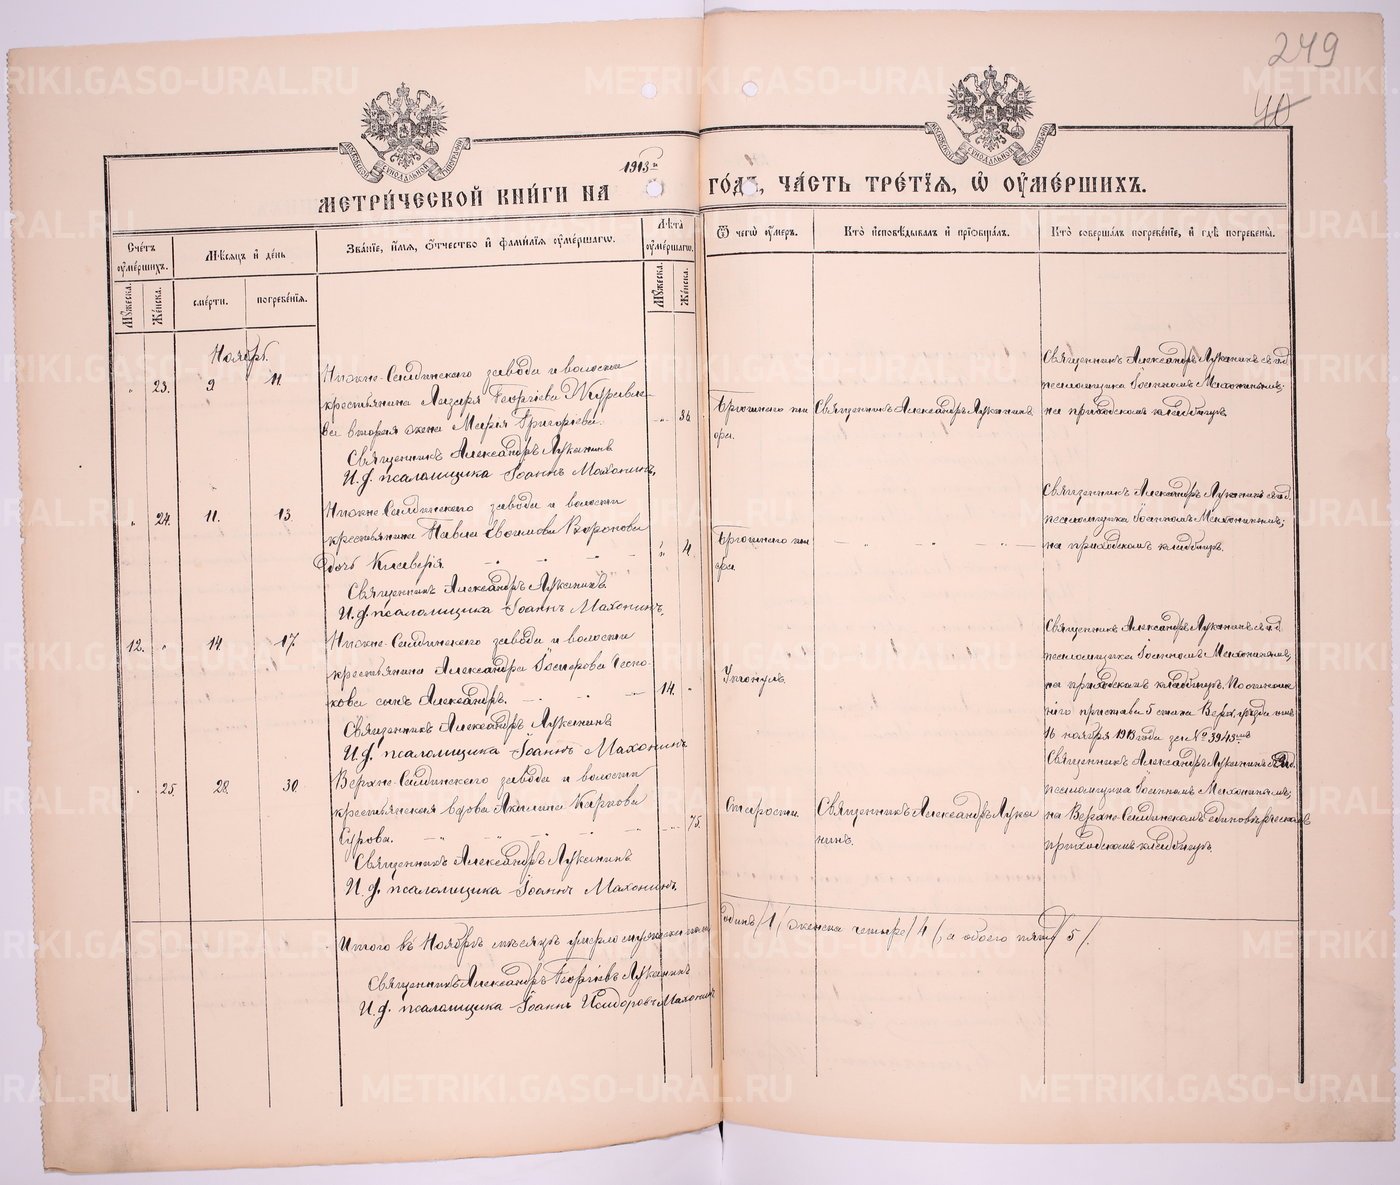 249
40
1913й
МЕТРИ́ЧЕСКОЙ КНИ́ГИ НА ГО́ДЪ, ЧА́СТЬ ТРЕ́ТЇѦ, Ѡ҆ ОУ҆МЕ́РШИХЪ.
Сче́тъ оу҆ме́ршихъ.
Мꙋ́жеска.
Же́нска.
Мѣ́сѧцъ и҆ де́нь
сме́рти.
погребе́нїѧ.
Зва́нїе, и҆́мѧ, ѻ҆́тчество и҆ фамилїѧ оу҆ме́ршагѡ.
Лѣ́та оу҆ме́ршагѡ.
Мꙋ́жеска.
Же́нска.
Ѿ чегѡ̀ оу҆́меръ.
Кто̀ и҆сповѣ́дывалъ и҆ прїѡбща́лъ.
Кто̀ соверша́лъ погребе́нїе, и҆ гдѣ̀ погребены̀.
Ноябрь.
„ 23. 9 11.
Нижне-Салдинскаго завода и волости
крестьянина Лазаря Георгіева Журавле-
ва вторая жена Марія Григорьева.
Священникъ Александръ Луканинъ
И. д. псаломщика Іоаннъ Махонинъ.
„ 34
Священникъ Александръ Луканинъ
Священникъ Александръ Луканинъ съ и. д.
псаломщика Іоанномъ Махонинымъ;
на приходскомъ кладбищѣ.
„ 24. 11. 13.
Нижне-Салдинскаго завода и волости
крестьянина Павла Евфимова Воронова
дочь Клавдія
Священникъ Александръ Луканинъ
И. д. псаломщика Іоаннъ Махонинъ.
„ 4.
Священникъ Александръ Луканинъ съ и. д.
псаломщика Іоанномъ Махонинымъ;
на приходскомъ кладбищѣ.
12. „ 14. 17.
Нижне-Салдинскаго завода и волости
крестьянина Александра
сынъ Александръ.
Священникъ Александръ Луканинъ
И. д. псаломщика Іоаннъ Махонинъ
14. „
Утонулъ.
Священникъ Александръ Луканинъ съ и. д.
псаломщика Іоанномъ Махонинымъ;
на приходскомъ кладбищѣ. По отноше-
нію пристава 5 стана Верх. уѣзда отъ
16 ноября 1913 года за № 3943
„ 25. 28. 30.
Верхне-Салдинскаго завода и волости
крестьянская вдова Акилина Карпова
Сурова.
Священникъ Александръ Луканинъ
И. д. псаломщика Іоаннъ Махонинъ.
75.
Старости.
Священникъ Александръ Лука
нинъ.
Священникъ Александръ Луканинъ съ и. д.
псаломщика Іоанномъ Махонинымъ;
на Верхне-Салдинскомъ единовѣрческомъ
приходскомъ кладбищѣ.
Итого въ Ноябрѣ мѣсяцѣ умерло мужеска пола одинъ /1/, женска четыре /4/, а обоего пять /5/.
Священникъ Александръ Георгіевъ Луканинъ
И. д. псаломщика Іоаннъ Исидоровъ Махонинъ
METRIKI.GASO-URAL.RU